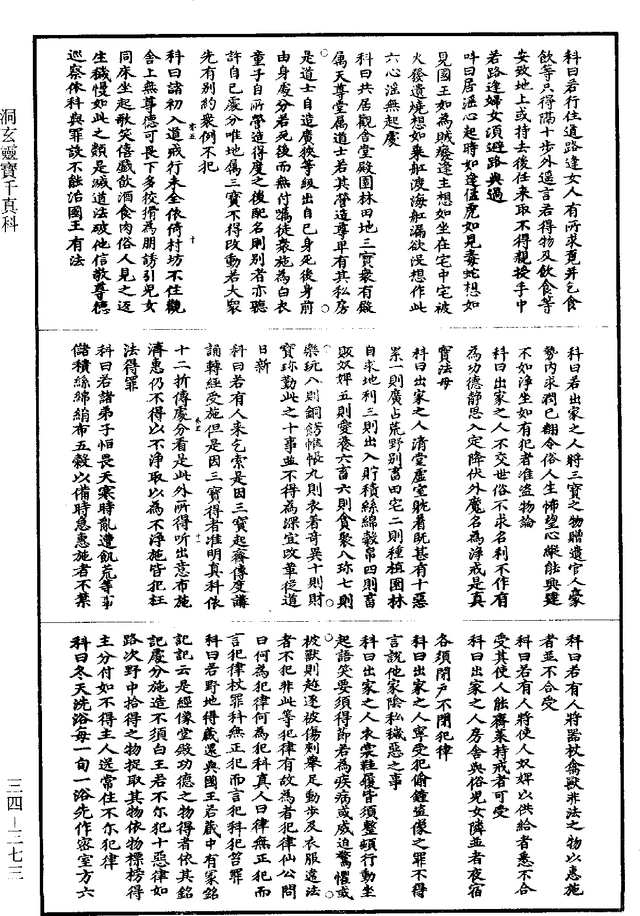 科曰若行住道路逢女人有所求覓并乞食
飲等只得隔十步外遥言若得物及飲食等
安致地上或持去後任来取不得親授手中
若路逢婦女須避路與過
科曰居淫心起時如逢㹱虎如見毒蛇想如
見國王如為賊癈逢主想如坐在宅中宅被
火發遺燒想如乘舡渡海舡漏欲没想作此
六心淫無起處
科曰共居觀舎堂殿園林田地三寶衆有㡬
属天尊堂属道士若其啓造尊卑有其私房
是道士自造廣狹等級出自己身死後身前
由身處分若死後而無付囑徒衆施為白衣
童子自所營造得度之後配名則别者亦聽
許自己處分唯地属三寶不得改動若大衆
先有别約衆例不犯
科曰諸初入道戒行未全依倚村坊不住觀
舎上無尊德可畏下多狡猾為朋誘引兒女
同床坐起歌笑僖戲飲酒食肉俗人見之返
生穢慢如此之類是滅道法破他信敬尊德
巡察依科與罪設不能治國王有法
科曰若出家之人將三寶之物贈遺官人豪
勢内求潤已翻令俗人生怖望心縱能興建
不如淨坐如有犯者准盗物論
科曰出家之人不交世俗不求名利不作有
為功德静思入定降伏外魔名為淨戒是真
寶法母
科曰出家之人清堂虚室躭着既甚有十惡
累一則廣占荒野别畜田宅二則種植園林
自求地利三則出入貯積絲綿榖帛四則畜
販奴婢五則愛養六畜六則貪聚八珎七則
樂玩八則銅餝帷帳九則衣着奇異十則財
寶珎勤此之十事並不得為深宜改革從道
日新
科曰若有人来乞索是因三寶起齋傳度講
誦轉經受施但是因三寶得者准明真科依
十二折傳處分看是此外所得听出意布施
濟惠仍不得以不净取以為不淨施皆犯枉
法得罪
科曰若諸弟子怕畏天寒時亂遭飢荒等事
儲積絲綿絹布五穀以備時急惠施者不業
科曰若有人將噐杖禽獸非法之物以惠施
者並不合受
科曰若有人將使人奴婢以供給者悉不合
受其使人能齋菜持戒者可受
科曰出家之人房舎與俗兒女隣並者夜宿
各須閉戸不閉犯律
科曰出家之人寧受犯偷鍾盗像之罪不得
言說他家陰私穢惡之事
科曰出家之人衣裳鞋履皆須整頓行動坐
起語笑要須得節若為疾病或威迫驚懼或
被獸則越逐被傷刺舉足動歩及衣服違法
者不犯非此等犯律有故為者犯律仙公問
曰何為犯律何為犯科真人曰律無正犯而
言犯律杖罪科無正犯而言犯科犯笞罪
科曰若野地得藏還與國王若藏中有冢銘
記記云是經像堂殿功德之物得者依其銘
記處分施造不須白王若不尔犯十惡律如
路次野中拾得之物捉取其物依物標榜得
主分付如不得主人送常住不尔犯律
科曰冬天洗浴每一旬一浴先作密室方六
洞玄靈寶千真科
三四—三七三